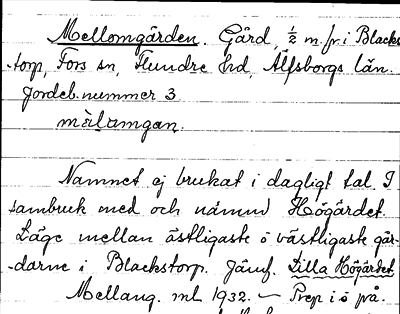 Mellomgården. Gård, ½ m. fr. i Blacks-
torp, Fors sn, Flundre hd, Älfsborgs län.
Jordeb. nummer 3
mèlamgan.
Namnet ej brukat i dagligt tal. I
sambruk med och nämnd Högärdet.
Läge mellan östligaste o västligaste går-
-darne i Blackstorp. Jämf. Lilla Högärdet
Mellang. ml 1932. — Prep i o på.